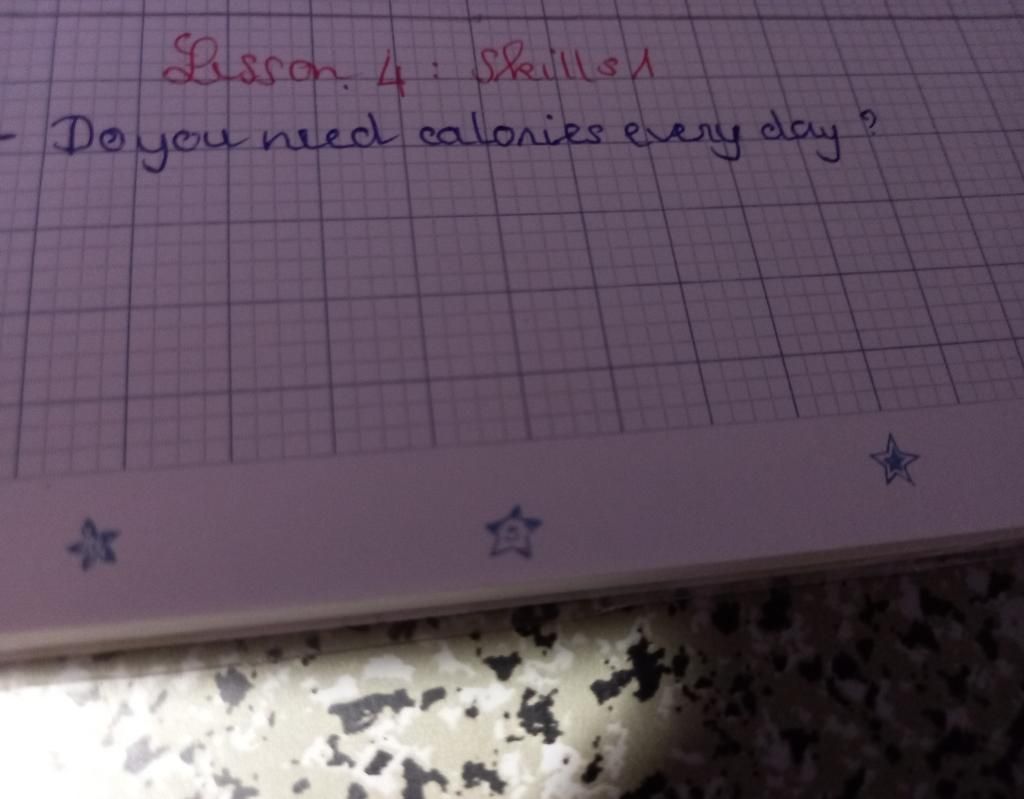 Lesson. 4 : Skills 1
- Do you need calories every day ?